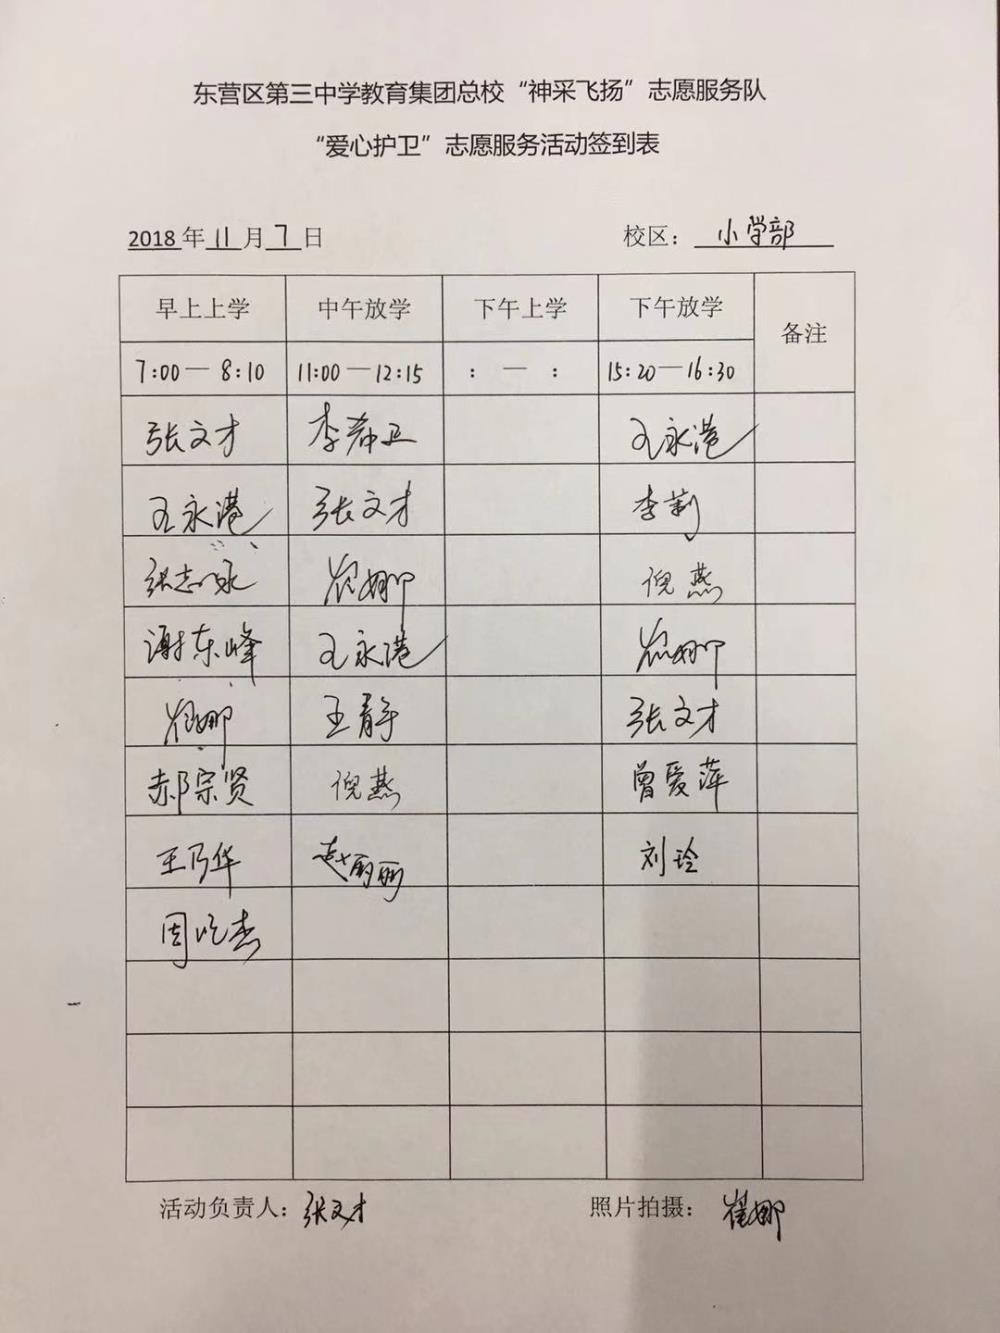 东营区第三中学教育集团总校“神采飞扬”志愿服务队
“爱心护卫”志愿服务活动签到表
2018年11月7日 校区：小学部
早上上学 中午放学 下午上学 下午放学 备注
7:00—8:10 11:00—12:15 :—: 15:20—16:30
张文才 李 王永港
王永港 张文才 李莉
张志永 崔娜 倪燕
谢东峰 王永港 崔娜
崔娜 王静 张文才
郝宗贤 倪燕 曾爱萍
王乃华 赵丽丽 刘玲
周 杰
活动负责人：张文才 照片拍摄：崔娜